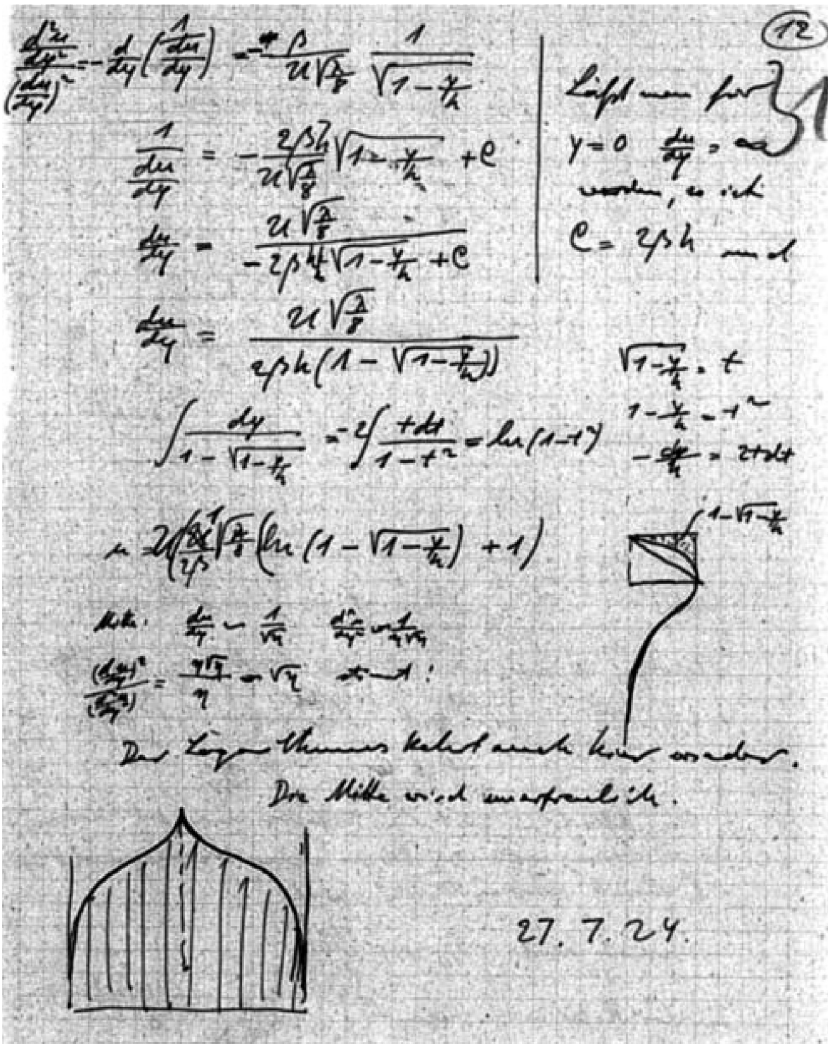 12
(d²u/dy²)/(du/dy)² = -d/dy (1/(du/dy)) = - β/(U√(λ/8)) 1/√(1-y/h)
1/(du/dy) = - 2βh/(U√(λ/8)) √(1-y/h) + C
du/dy = U√(λ/8)/(-2βh√(1-y/h) + C)
Läßt man für
y=0 du/dy = ∞
werden, so ist
C = 2βh und
du/dy = U√(λ/8)/(2βh(1-√(1-y/h)))
∫ dy/(1-√(1-y/h)) = -2∫ t dt/(1-t²) = ln(1-t²)
√(1-y/h) = t
1-y/h = t²
-dy/h = 2t dt
u = U(1/2β √(λ/8) (ln(1-√(1-y/h)) + 1)
1-√(1-y/h)
Mitte: du/dy ~ 1/√η d²u/dy² ~ 1/η√η
(du/dy)²/(d²u/dy²) = η√η/η = √η stimmt!
Der Logarithmus kehrt auch hier wieder.
Die Mitte wird unerfreulich.
27. 7. 24.